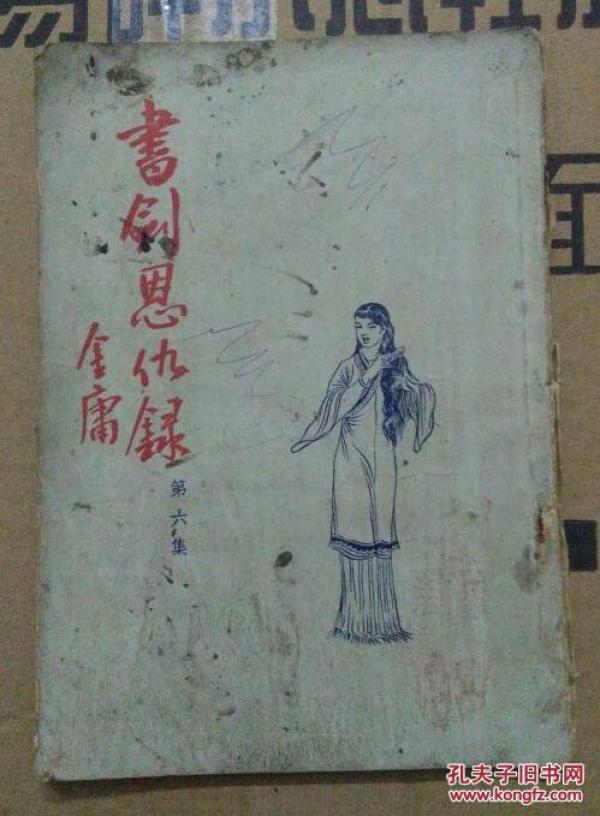 書劍恩仇録
金庸
第六集
孔夫子旧书网
www.kongfz.com